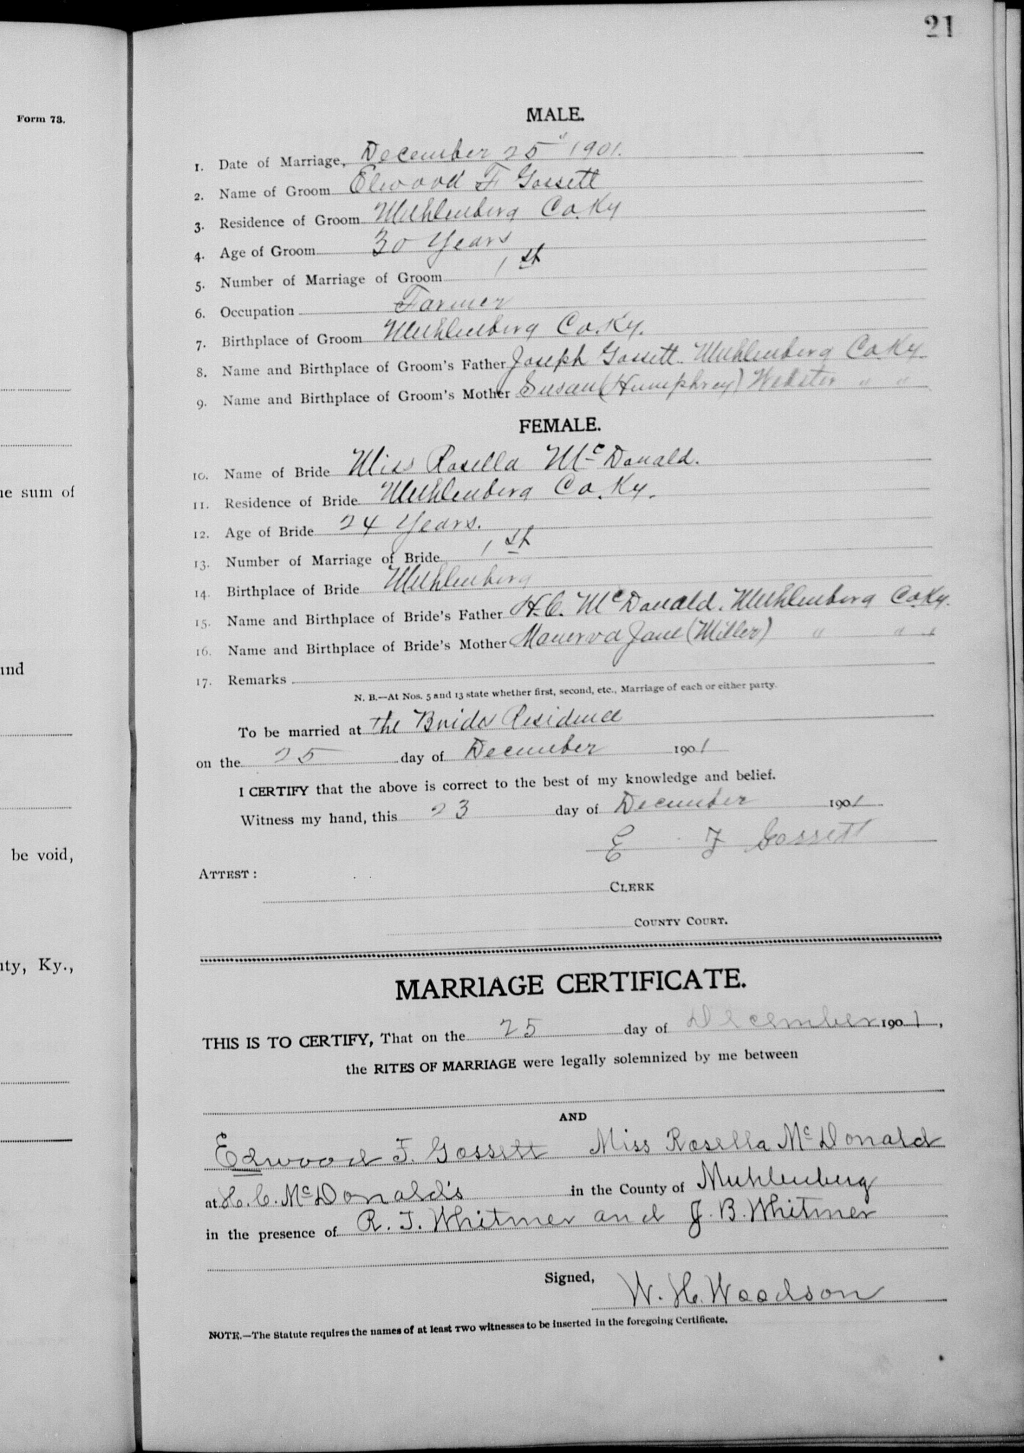 21
Form 73.
MALE.
1. Date of Marriage, December 25" 1901.
2. Name of Groom Elwood F Gossett
3. Residence of Groom Muhlenberg Co. Ky
4. Age of Groom 30 Years
5. Number of Marriage of Groom 1st
6. Occupation Farmer
7. Birthplace of Groom Muhlenberg Co. Ky.
8. Name and Birthplace of Groom's Father Joseph Gossett Muhlenberg Co Ky
9. Name and Birthplace of Groom's Mother Susan (Humphrey) Webster " "
FEMALE.
10. Name of Bride Miss Rosella McDonald.
11. Residence of Bride Muhlenberg Co. Ky.
12. Age of Bride 24 Years.
13. Number of Marriage of Bride 1st
14. Birthplace of Bride Muhlenberg
15. Name and Birthplace of Bride's Father H.C. McDonald. Muhlenberg Co. Ky.
16. Name and Birthplace of Bride's Mother Manerva Jane (Miller) " " "
17. Remarks
N. B.—At Nos. 5 and 13 state whether first, second, etc., Marriage of each or either party.
To be married at the Brides Residence
on the 25 day of December 1901
I CERTIFY that the above is correct to the best of my knowledge and belief.
Witness my hand, this 23 day of December 1901
E F Gossett
ATTEST:
CLERK
COUNTY COURT.
MARRIAGE CERTIFICATE.
THIS IS TO CERTIFY, That on the 25 day of December 1901,
the RITES OF MARRIAGE were legally solemnized by me between
AND
Edwood F. Gossett Miss Rosella McDonald
at H. C. McDonald's in the County of Muhlenberg
in the presence of R. T. Whitmer and J. B. Whitmer
Signed,
W. H. Woodson
NOTE.—The Statute requires the names of at least TWO witnesses to be inserted in the foregoing Certificate.
e sum of
nd
be void,
ty, Ky.,